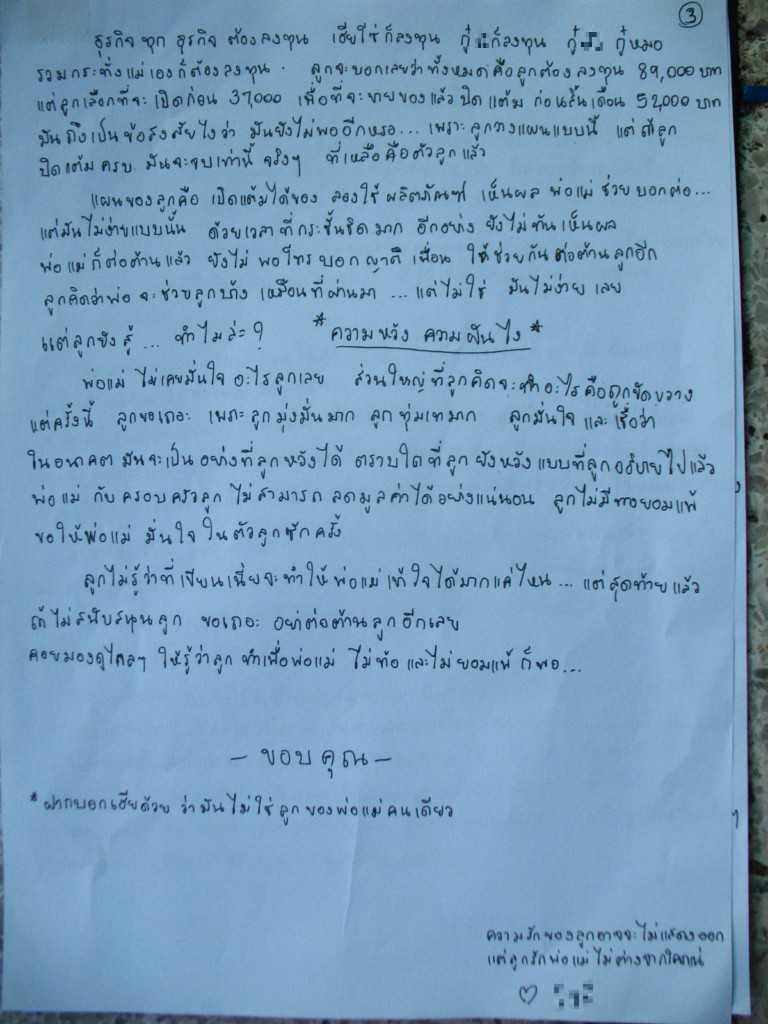 3
ธุรกิจ ทุก ธุรกิจ ต้องลงทุน เฮียใช้ก็ลงทุน กู๋ ก็ลงทุน กู๋ กู๋หมอ
รวมกระทั่งแม่เองก็ต้องลงทุน. ลูกจะบอกเลยว่าทั้งหมดคือลูกต้องลงทุน 89,000 บาท
แต่ลูกเลือกที่จะเปิดก่อน 37,000 เพื่อที่จะขายของแล้วปิดแต้มก่อนสิ้นเดือน 52,000 บาท
มันถึงเป็นข้อสงสัยไงว่า มันยังไม่พออีกหรอ... เพราะลูกวางแผนแบบนี้ แต่ถ้าลูก
ปิดแต้มครบ มันจะจบเท่านี้ จริงๆ ที่เหลือคือตัวลูกแล้ว
แผนของลูกคือ เปิดแต้มได้ของ ลองใช้ผลิตภัณฑ์ เห็นผล พ่อแม่ช่วยบอกต่อ...
แต่มันไม่ง่ายแบบนั้น ด้วยเวลาที่กระชั้นชิดมาก อีกอย่าง ยังไม่ทันเห็นผล
พ่อแม่ก็ต่อต้านแล้ว ยังไม่พอโทรบอกญาติ เพื่อน ให้ช่วยกันต่อต้านลูกอีก
ลูกคิดว่าพ่อจะช่วยลูกบ้าง เหมือนที่ผ่านมา ... แต่ไม่ใช่ มันไม่ง่ายเลย
แต่ลูกยังสู้ ... ทำไมล่ะ? *ความหวัง ความฝันไง*
พ่อแม่ ไม่เคยมั่นใจอะไรลูกเลย ส่วนใหญ่ที่ลูกคิดจะทำอะไรคือถูกขัดขวาง
แต่ครั้งนี้ ลูกขอเถอะ เพราะลูกมุ่งมั่นมาก ลูกทุ่มเทมาก ลูกมั่นใจและเชื่อว่า
ในอนาคตมันจะเป็นอย่างที่ลูกหวังได้ ตราบใดที่ลูกยังหวังแบบที่ลูกอธิบายไปแล้ว
พ่อแม่ กับครอบครัวลูก ไม่สามารถลดมูลค่าได้อย่างแน่นอน ลูกไม่มีทางยอมแพ้
ขอให้พ่อแม่ มั่นใจในตัวลูกซักครั้ง
ลูกไม่รู้ว่าที่เขียนเนี่ยจะทำให้พ่อแม่เข้าใจได้มากแค่ไหน... แต่สุดท้ายแล้ว
ถ้าไม่สนับสนุนลูก ขอเถอะ อย่าต่อต้านลูกอีกเลย
คอยมองดูไกลๆ ให้รู้ว่าลูกทำเพื่อพ่อแม่ ไม่ท้อและไม่ยอมแพ้ ก็พอ...
- ขอบคุณ -
*ฝากบอกเฮียด้วย ว่ามันไม่ใช่ลูกของพ่อแม่คนเดียว
ความรักของลูกอาจจะไม่แสดงออก
แต่ลูกรักพ่อแม่ไม่ต่างจากใคร